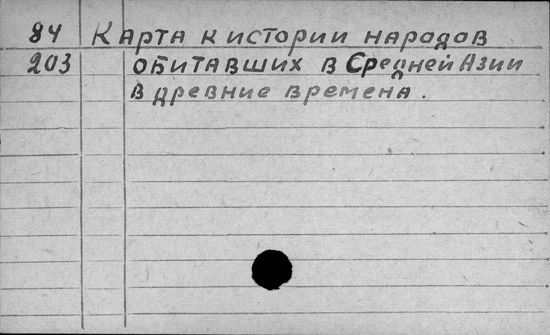 84 Карта к истории народов
203 обитавших в Средней Азии
в древние времена.